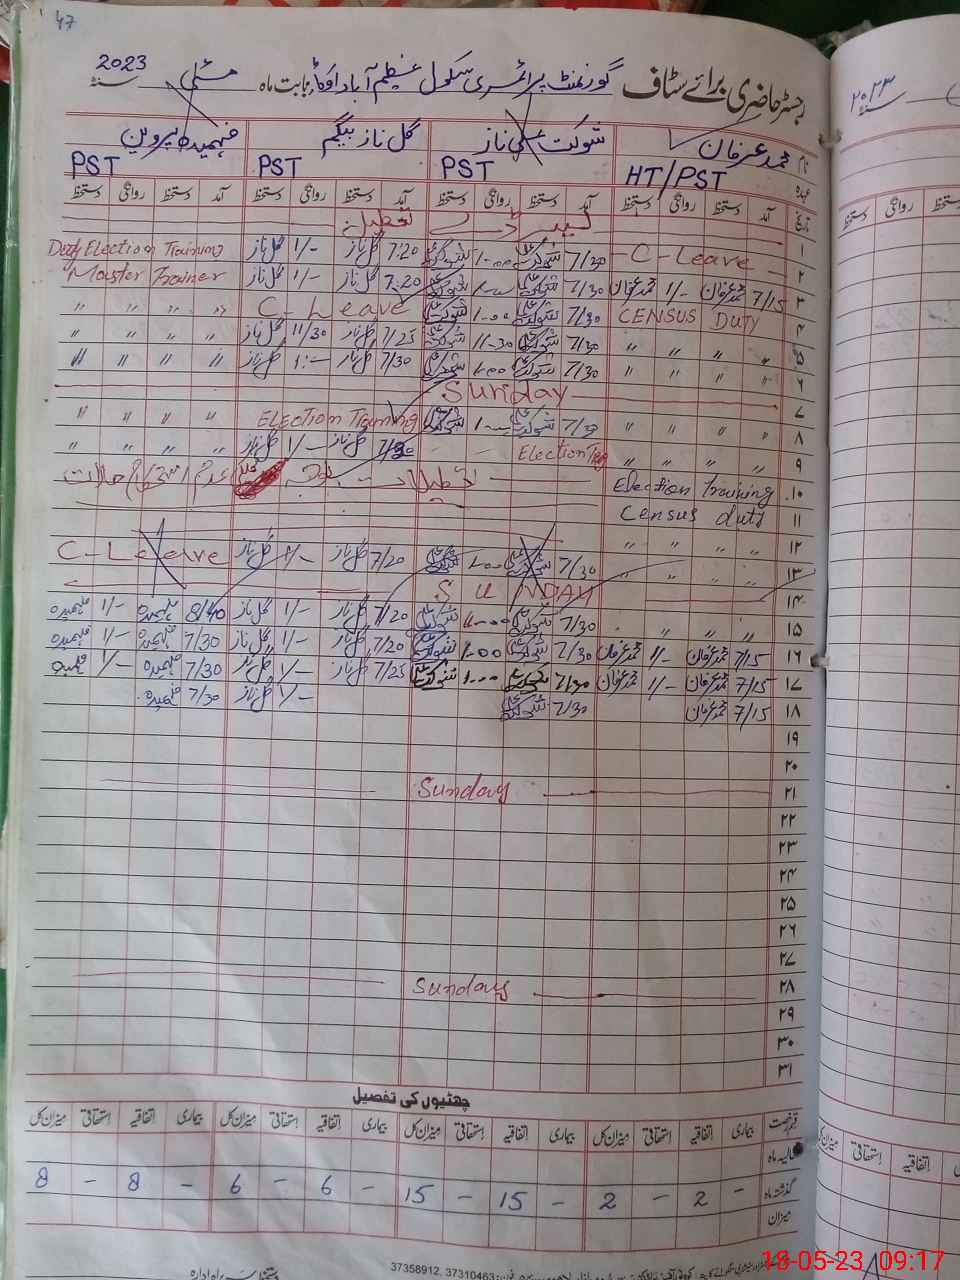 47
رجسٹر حاضری برائے سٹاف گورنمنٹ پرائمری سکول عظیم آباد اوکاڑہ بابت ماہ مئی 2023 سنہ
نام محمد عرفان شوکت علی ناز گل ناز بیگم فہمیدہ پروین
عہدہ HT/PST PST PST PST
تاریخ آمد دستخط روانگی دستخط آمد دستخط روانگی دستخط آمد دستخط روانگی دستخط آمد دستخط روانگی دستخط
۱ لیبر ڈے تعطیل
۲ C-Leave 7/30 شوکت علی 1-00 شوکت علی 7:20 گل ناز 1/- گل ناز Duty Election Training
۳ 7/15 محمد عرفان 1/- محمد عرفان 7/30 شوکت علی شوکت علی 7:20 گل ناز 1/- گل ناز Master Trainer
۴ CENSUS DUTY 7/30 شوکت علی 1-00 شوکت علی C-Leave " " " "
۵ " " " " 7/30 شوکت علی 11-30 شوکت علی 7/25 گل ناز 11/30 گل ناز " " " "
۶ " " " " 7/30 شوکت علی 1-00 شوکت علی 7/30 گل ناز 1:- گل ناز " " " "
۷ Sunday
۸ " " " " 7/30 شوکت علی شوکت علی Election Training " " " "
۹ " " " " Election گل ناز 1/- گل ناز " " " "
۱۰ Election Training تعطیلات بوجہ
۱۱ Census duty
۱۲ " " " "
۱۳ " " " " 7/30 شوکت علی 1-00 شوکت علی 7/20 گل ناز 1/- گل ناز C-Leave
۱۴ SUNDAY
۱۵ " " " 7/30 شوکت علی شوکت علی 7/20 گل ناز 1/- گل ناز 8/40 فہمیدہ 1/- فہمیدہ
۱۶ 7/15 محمد عرفان 1/- محمد عرفان 7/30 شوکت علی 1-00 شوکت علی 7/20 گل ناز 1/- گل ناز 7/30 فہمیدہ 1/- فہمیدہ
۱۷ 7/15 محمد عرفان 1/- محمد عرفان 7/30 شوکت علی 1-00 شوکت علی 7/25 گل ناز 1/- گل ناز 7/30 فہمیدہ 1/- فہمیدہ
۱۸ 7/15 محمد عرفان 7/30 شوکت علی 1/- گل ناز 7/30 فہمیدہ
۱۹
۲۰
۲۱ Sunday
۲۲
۲۳
۲۴
۲۵
۲۶
۲۷
۲۸ Sunday
۲۹
۳۰
۳۱
چھٹیوں کی تفصیل
قسم رخصت بیماری اتفاقیہ استحقاقی میزان کل بیماری اتفاقیہ استحقاقی میزان کل بیماری اتفاقیہ استحقاقی میزان کل بیماری اتفاقیہ استحقاقی میزان کل
حالیہ ماہ
گذشتہ ماہ - 2 - 2 - 15 - 15 - 6 - 6 - 8 - 8
میزان
37358912, 37310463
دستخط سربراہ ادارہ
۲۰۲۳ سنہ
دستخط روانگی دستخط
میزان کل استحقاقی اتفاقیہ
18-05-23 09:17